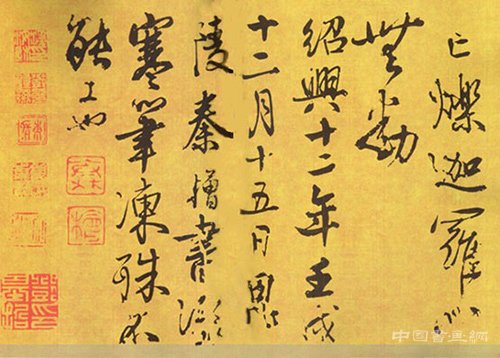 亡爍迦羅心
無動
紹興十二年壬戌
十二月十五日
陵秦檜書深
寒筆凍殊不
能工也
中国書畫網